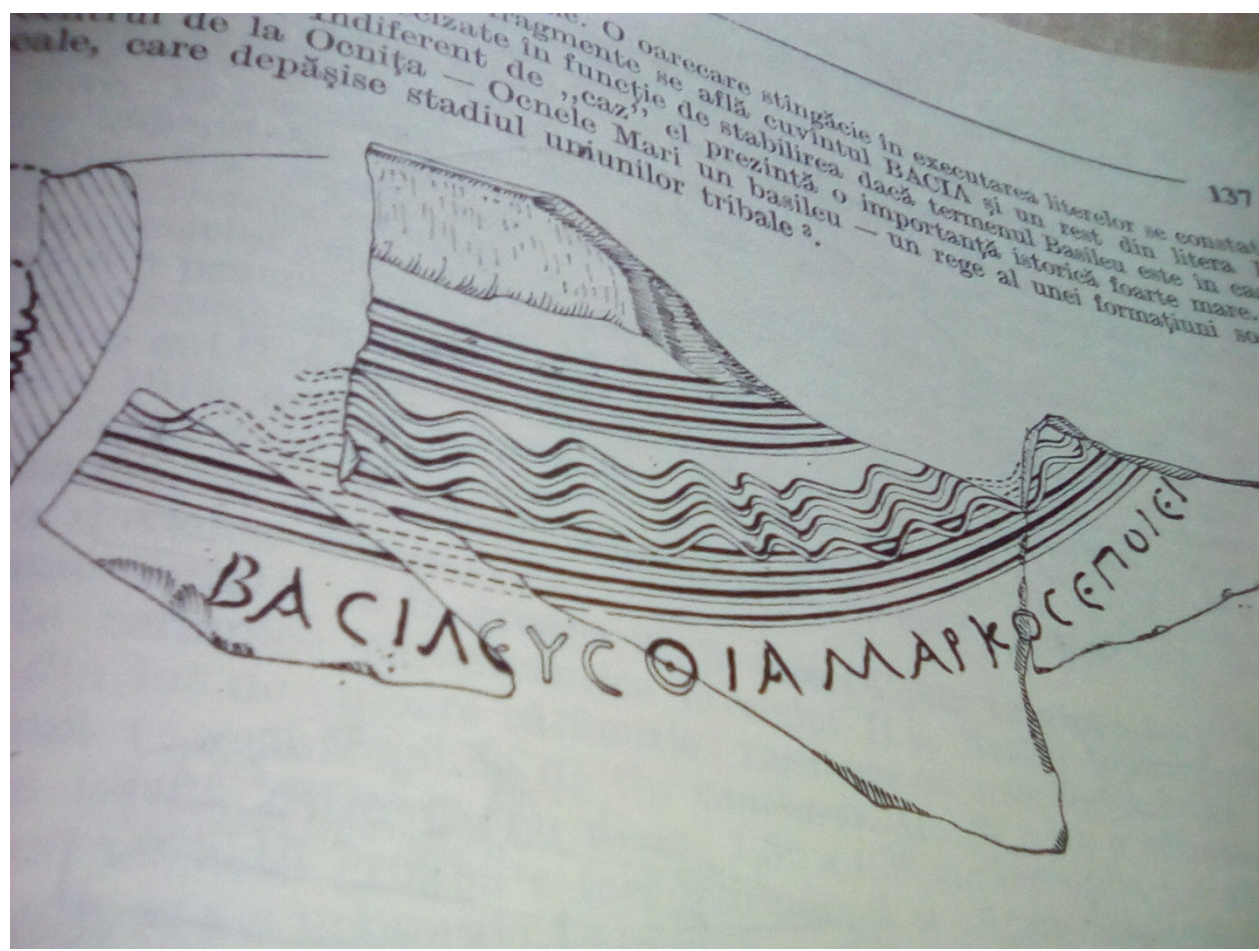 137
O oarecare stîngăcie în executarea literelor se
fragmente se află cuvîntul BACIA şi un rest din litera
în funcţie de stabilirea dacă termenul Basileu este în
Indiferent de „caz” el prezintă o importanţă istorică foarte mare.
de la Ocniţa — Ocnele Mari un basileu — un rege al unei formaţiuni
cale, care depăşise stadiul uniunilor tribale ².
ΒΑCΙΛЄΥCΘΙΑΜΑΡΚΟCЄΠΟΙЄΙ